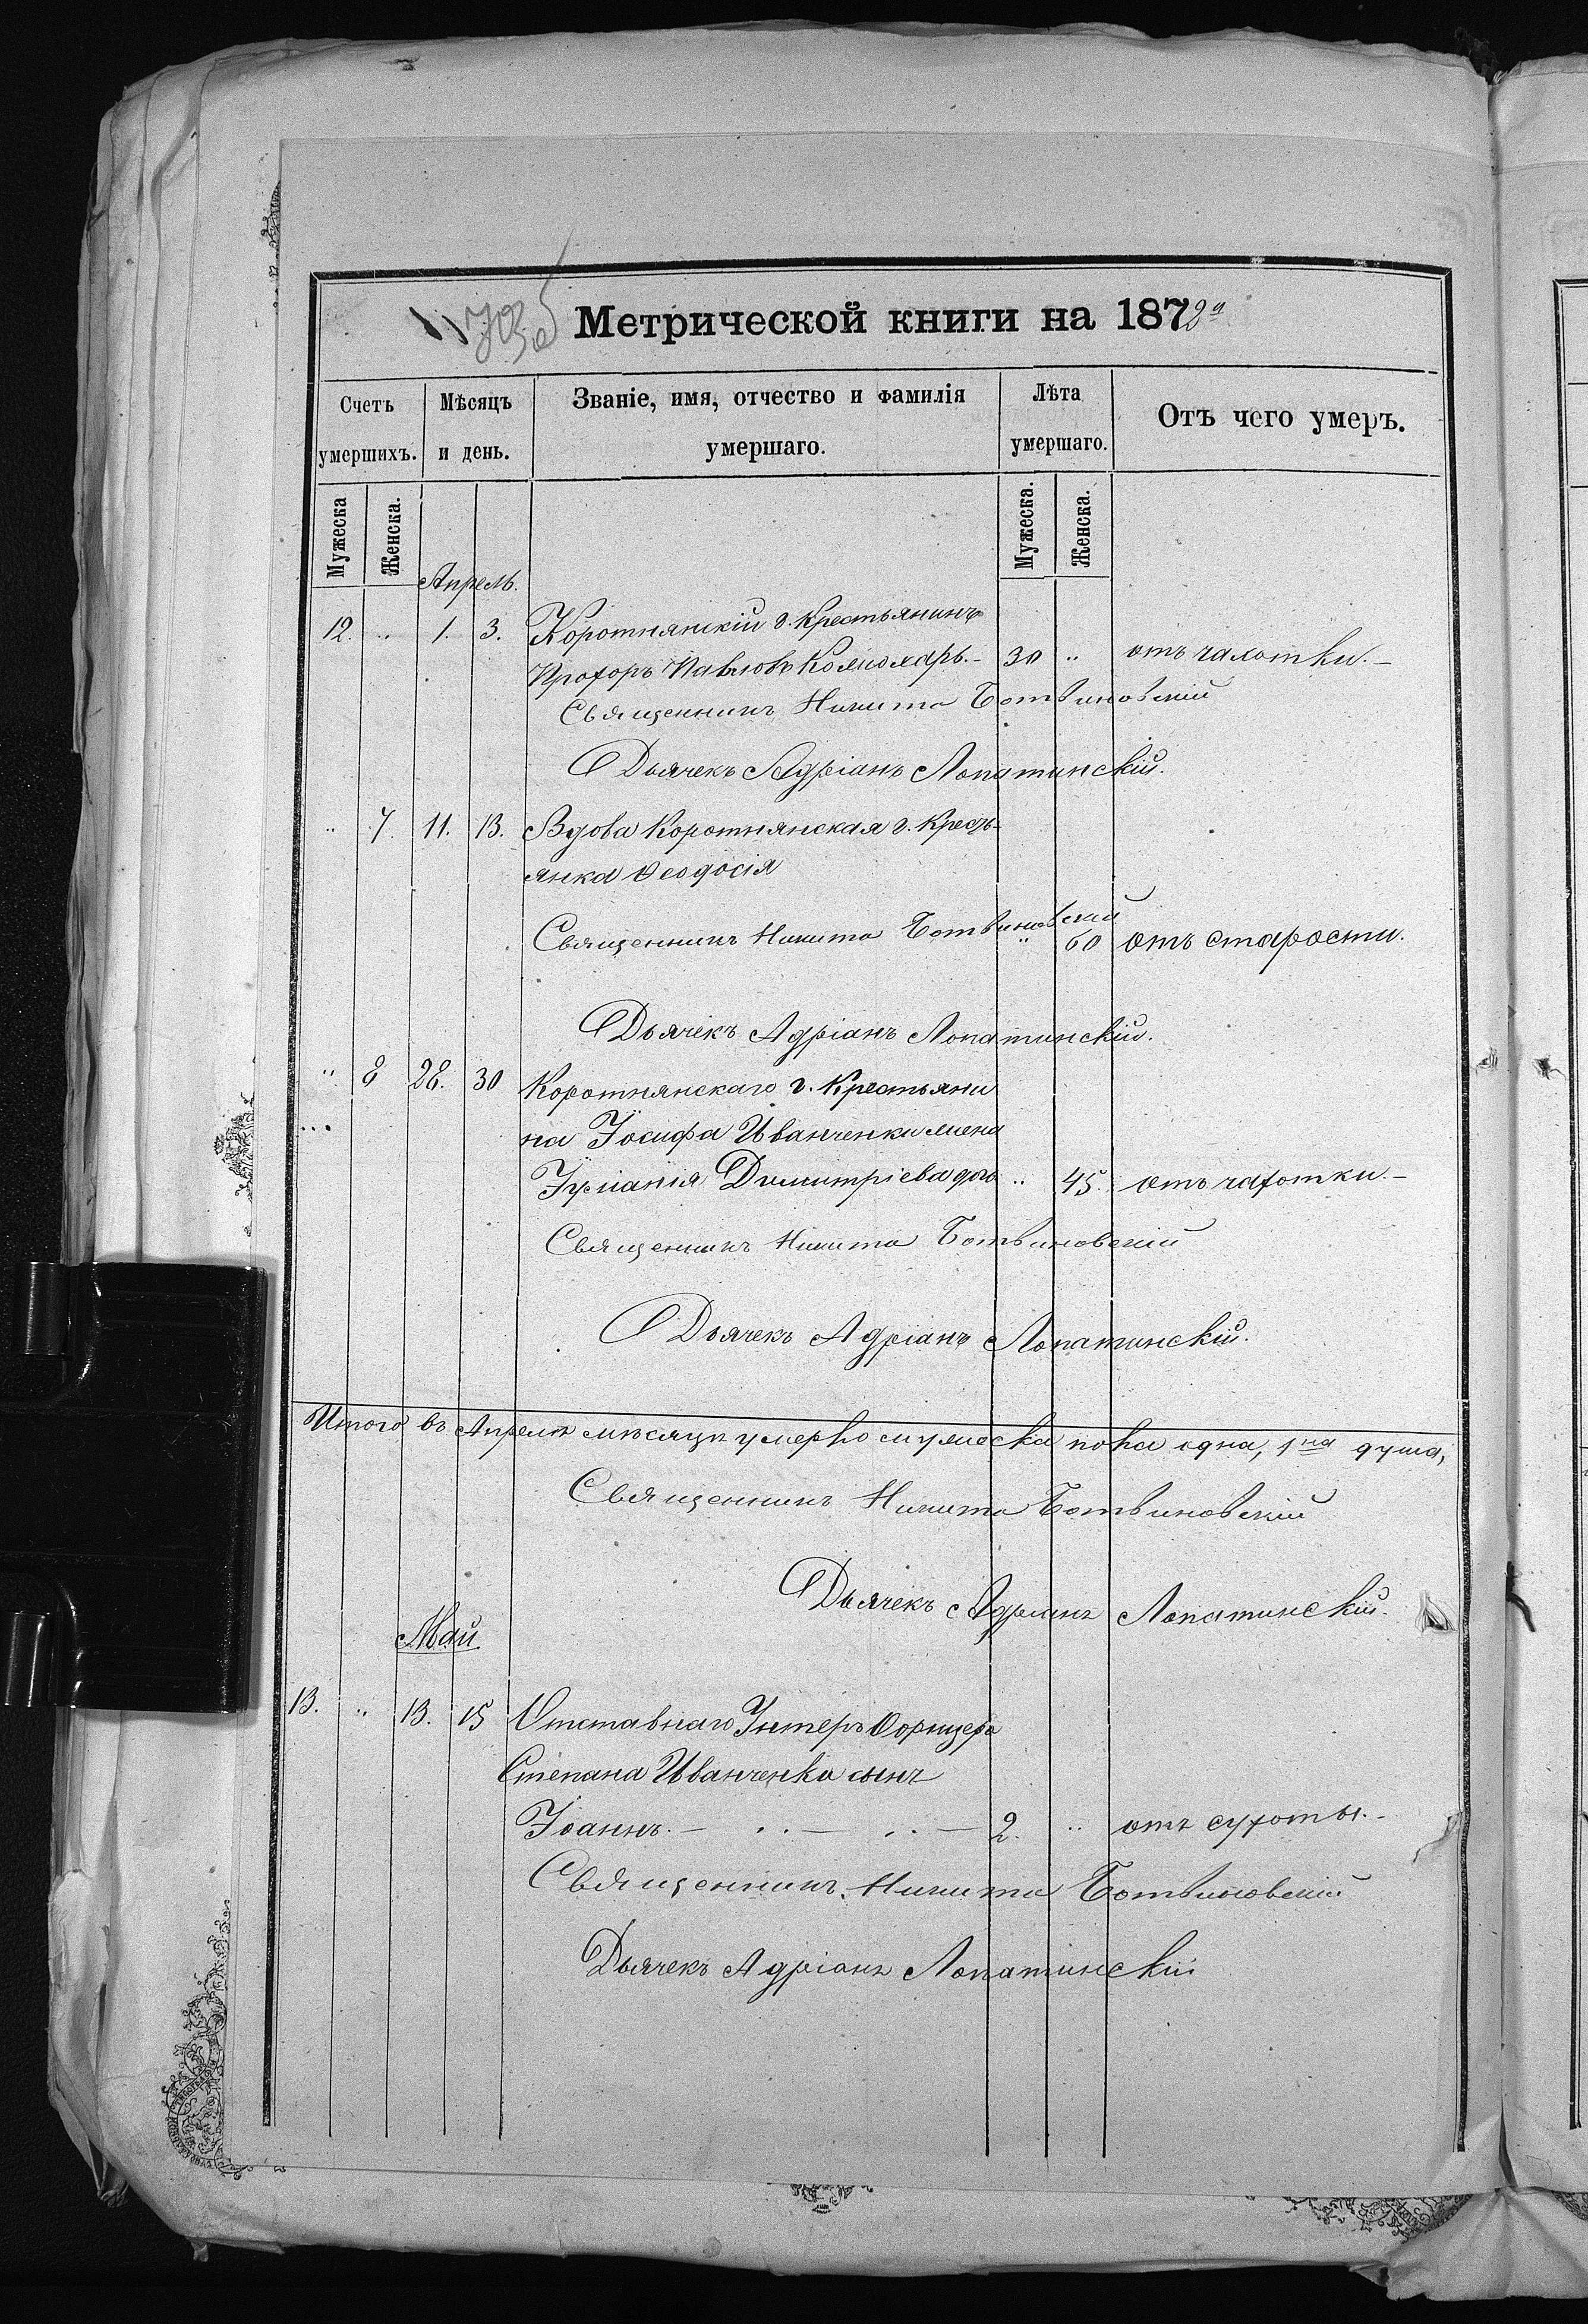 Метрической книги на 1872а
Счетъ умершихъ.
Мѣсяцъ и день.
Званіе, имя, отчество и фамилія умершаго.
Лѣта умершаго.
Отъ чего умеръ.
Мужеска Женска. Мужеска. Женска.
Апрель.
12. „ 1. 3. Коротнянскій г. Крестьянинъ
Прохоръ Павловъ 30 „ отъ чахотки.–
Священникъ Никита Ботвиновскій
Дьячекъ Адріанъ Лопатинскій.
„ 7. 11. 13. Вдова Коротнянская г. Кресть-
янка Ѳеодосія
Священникъ Никита Ботвиновскій
„ 60 отъ старости.
Дьячекъ Адріанъ Лопатинскій.
„ 8 28. 30 Коротнянскаго г. Крестьяни
на Іосифа Иванченки жена
Димитріева дочь „ 45. отъ чахотки.–
Священникъ Никита Ботвиновскій
Дьячекъ Адріанъ Лопатинскій.
Итого въ Апрелѣ мѣсяцѣ умерло мужеска пола одна, 1на душа,
Священникъ Никита Ботвиновскій
Дьячекъ Адріанъ Лопатинскій.
Май.
13. „ 13. 15 Отставнаго Унтеръ Офицера
Степана Иванченка сынъ
Іоаннъ.– 2. „ отъ сухоты.–
Священникъ Никита Ботвиновскій
Дьячекъ Адріанъ Лопатинскій